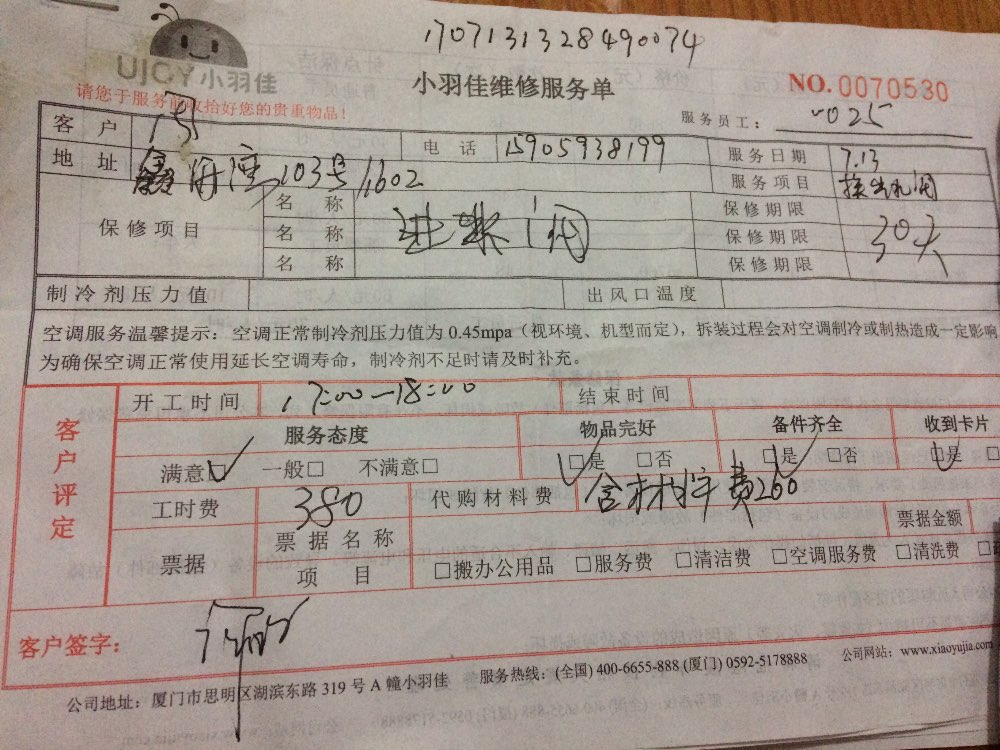 1707131328490074
UJOY小羽佳
小羽佳维修服务单
NO. 0070530
请您于服务前收拾好您的贵重物品!
服务员工:
025
客户
电话 15905938199
服务日期 7.13
地址 103号1602
服务项目
保修项目
名称
保修期限
名称
保修期限 30天
名称
保修期限
制冷剂压力值
出风口温度
空调服务温馨提示:空调正常制冷剂压力值为 0.45mpa(视环境、机型而定),拆装过程会对空调制冷或制热造成一定影响
为确保空调正常使用延长空调寿命,制冷剂不足时请及时补充。
客户评定
开工时间 17:00—18:00
结束时间
服务态度 物品完好 备件齐全 收到卡片
满意□ 一般□ 不满意□ □是 □否 □是 □否 □是
工时费 380 代购材料费 含材料费260
票据 票据名称
票据金额
项目 □搬办公用品 □服务费 □清洁费 □空调服务费 □清洗费
客户签字:
公司地址:厦门市思明区湖滨东路 319 号 A 幢小羽佳 服务热线:(全国) 400-6655-888 (厦门) 0592-5178888 公司网站:www.xiaoyujia.com